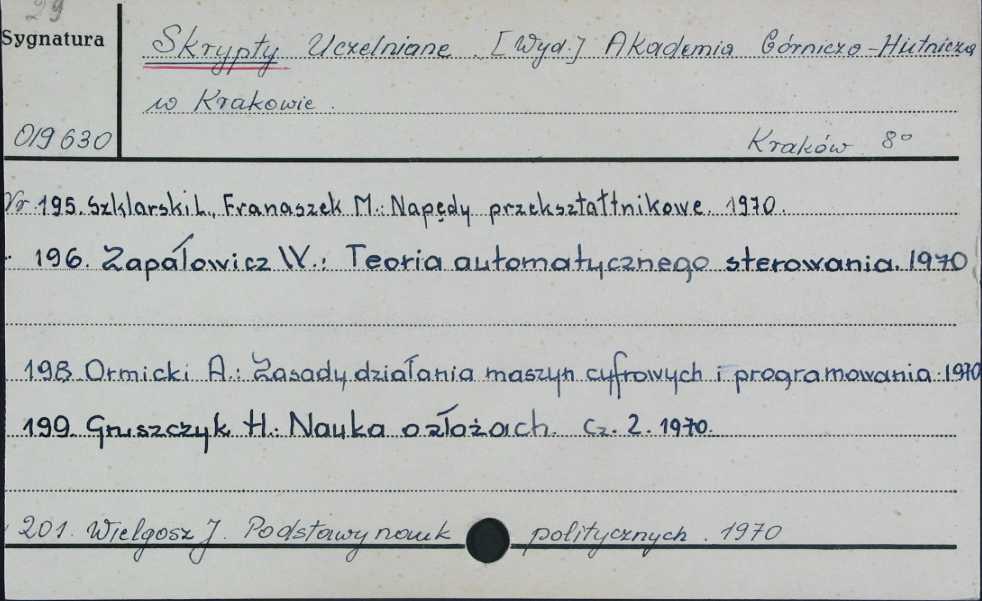 29
Sygnatura
Skrypty Uczelniane. [Wyd.] Akademia Górniczo-Hutnicza
w Krakowie.
019630
Kraków 8°
Nr 195. Szklarski L., Franaszek M.: Napędy przekształtnikowe. 1970.
196. Zapałowicz W.: Teoria automatycznego sterowania. 1970
198. Ormicki A.: Zasady działania maszyn cyfrowych i programowania. 1970
199. Gruszczyk H.: Nauka o złożach. Cz. 2. 1970.
201. Wielgosz J. Podstawy nauk politycznych. 1970